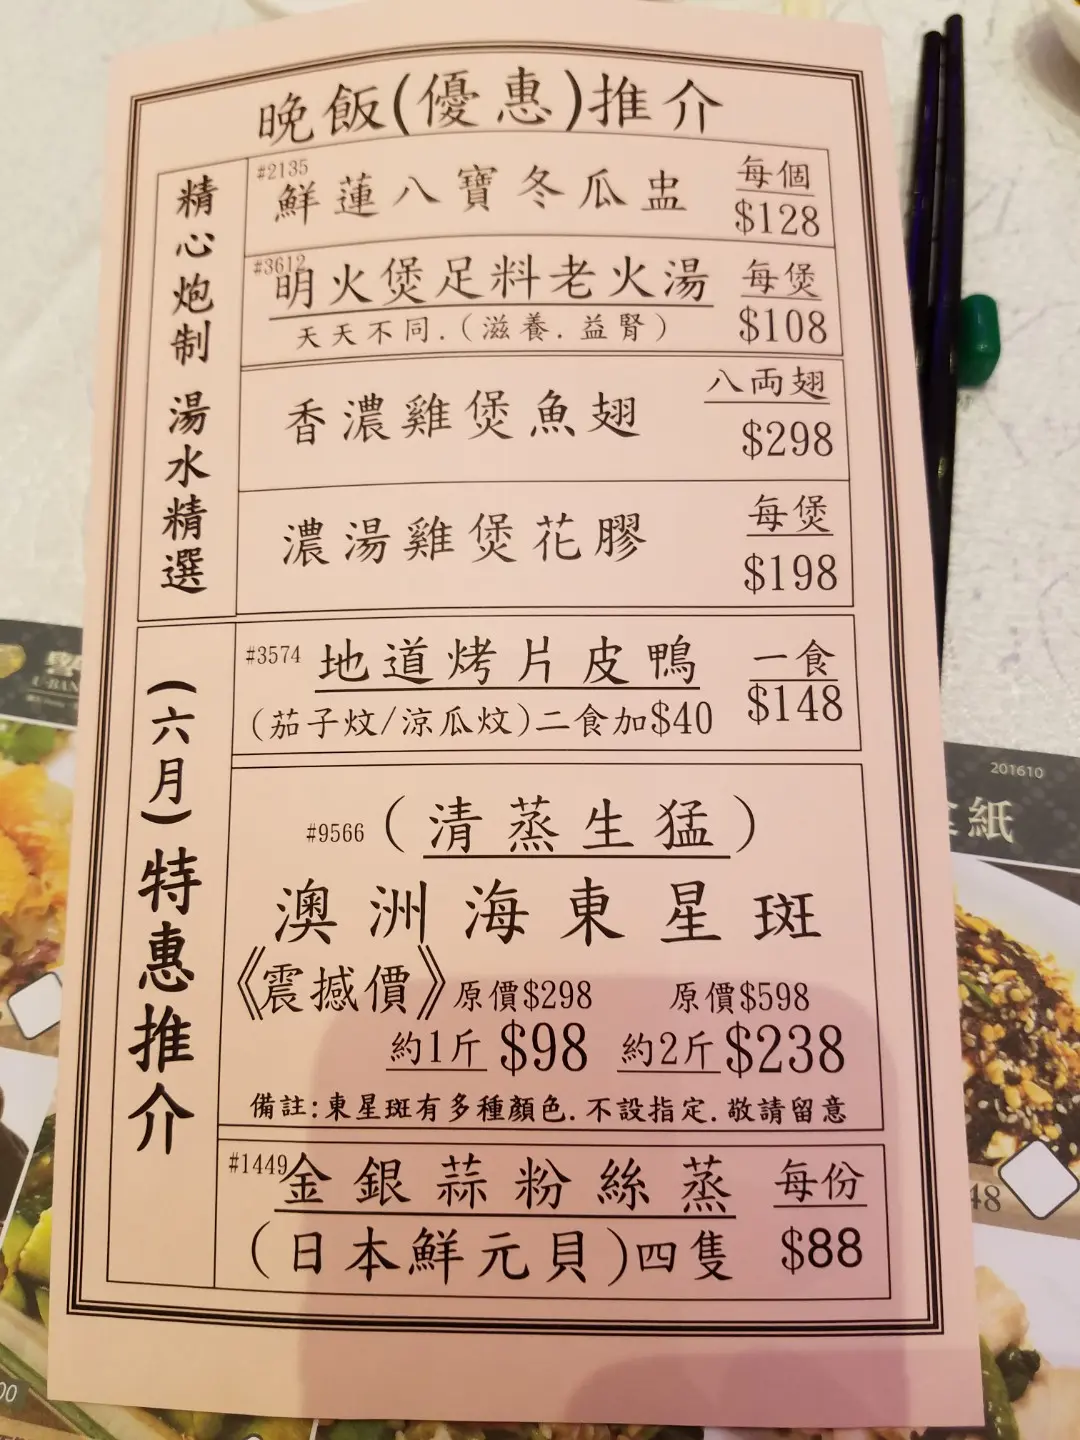 晚飯(優惠)推介
精心炮制 湯水精選
#2135
鮮蓮八寶冬瓜盅
每個
$128
#3612
明火煲足料老火湯
每煲
天天不同.(滋養.益腎)
$108
香濃雞煲魚翅
八両翅
$298
濃湯雞煲花膠
每煲
$198
(六月)特惠推介
#3574
地道烤片皮鴨
一食
(茄子炆/涼瓜炆)二食加$40
$148
#9566
(清蒸生猛)
澳洲海東星斑
《震撼價》
原價$298
原價$598
約1斤 $98
約2斤 $238
備註:東星斑有多種顏色.不設指定.敬請留意
#1449
金銀蒜粉絲蒸
每份
(日本鮮元貝)四隻
$88
201610
紙
48
00